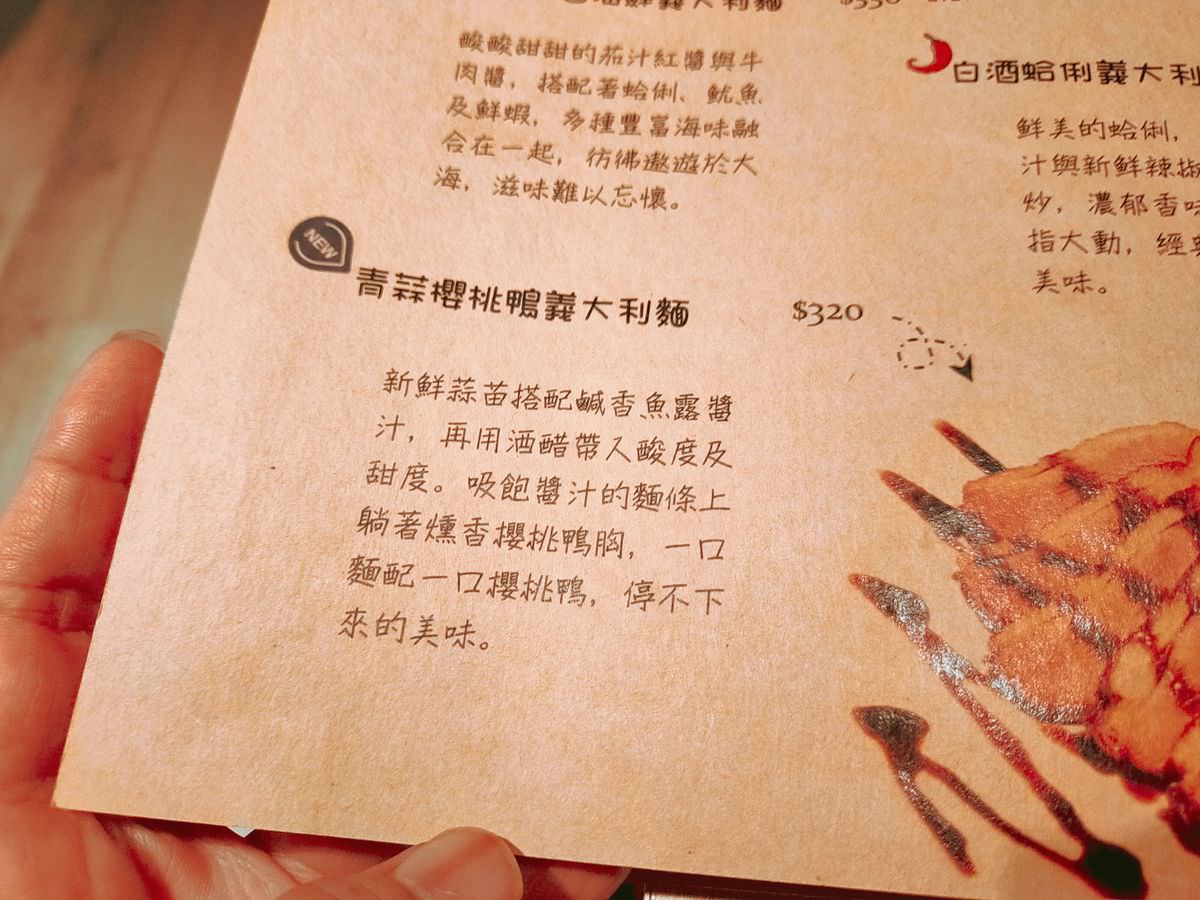 海鮮義大利麵
酸酸甜甜的茄汁紅醬與牛
肉醬，搭配著蛤俐、魷魚
及鮮蝦，多種豐富海味融
合在一起，彷彿遨遊於大
海，滋味難以忘懷。
NEW
青蒜櫻桃鴨義大利麵 $320
新鮮蒜苗搭配鹹香魚露醬
汁，再用酒醋帶入酸度及
甜度。吸飽醬汁的麵條上
躺著燻香櫻桃鴨胸，一口
麵配一口櫻桃鴨，停不下
來的美味。
白酒蛤俐義大利
鮮美的蛤俐，
汁與新鮮辣椒
炒，濃郁香味
指大動，經典
美味。